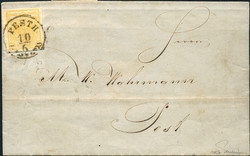 PESTH
10
5
Herrn
M. W. Wahrmann
Pest